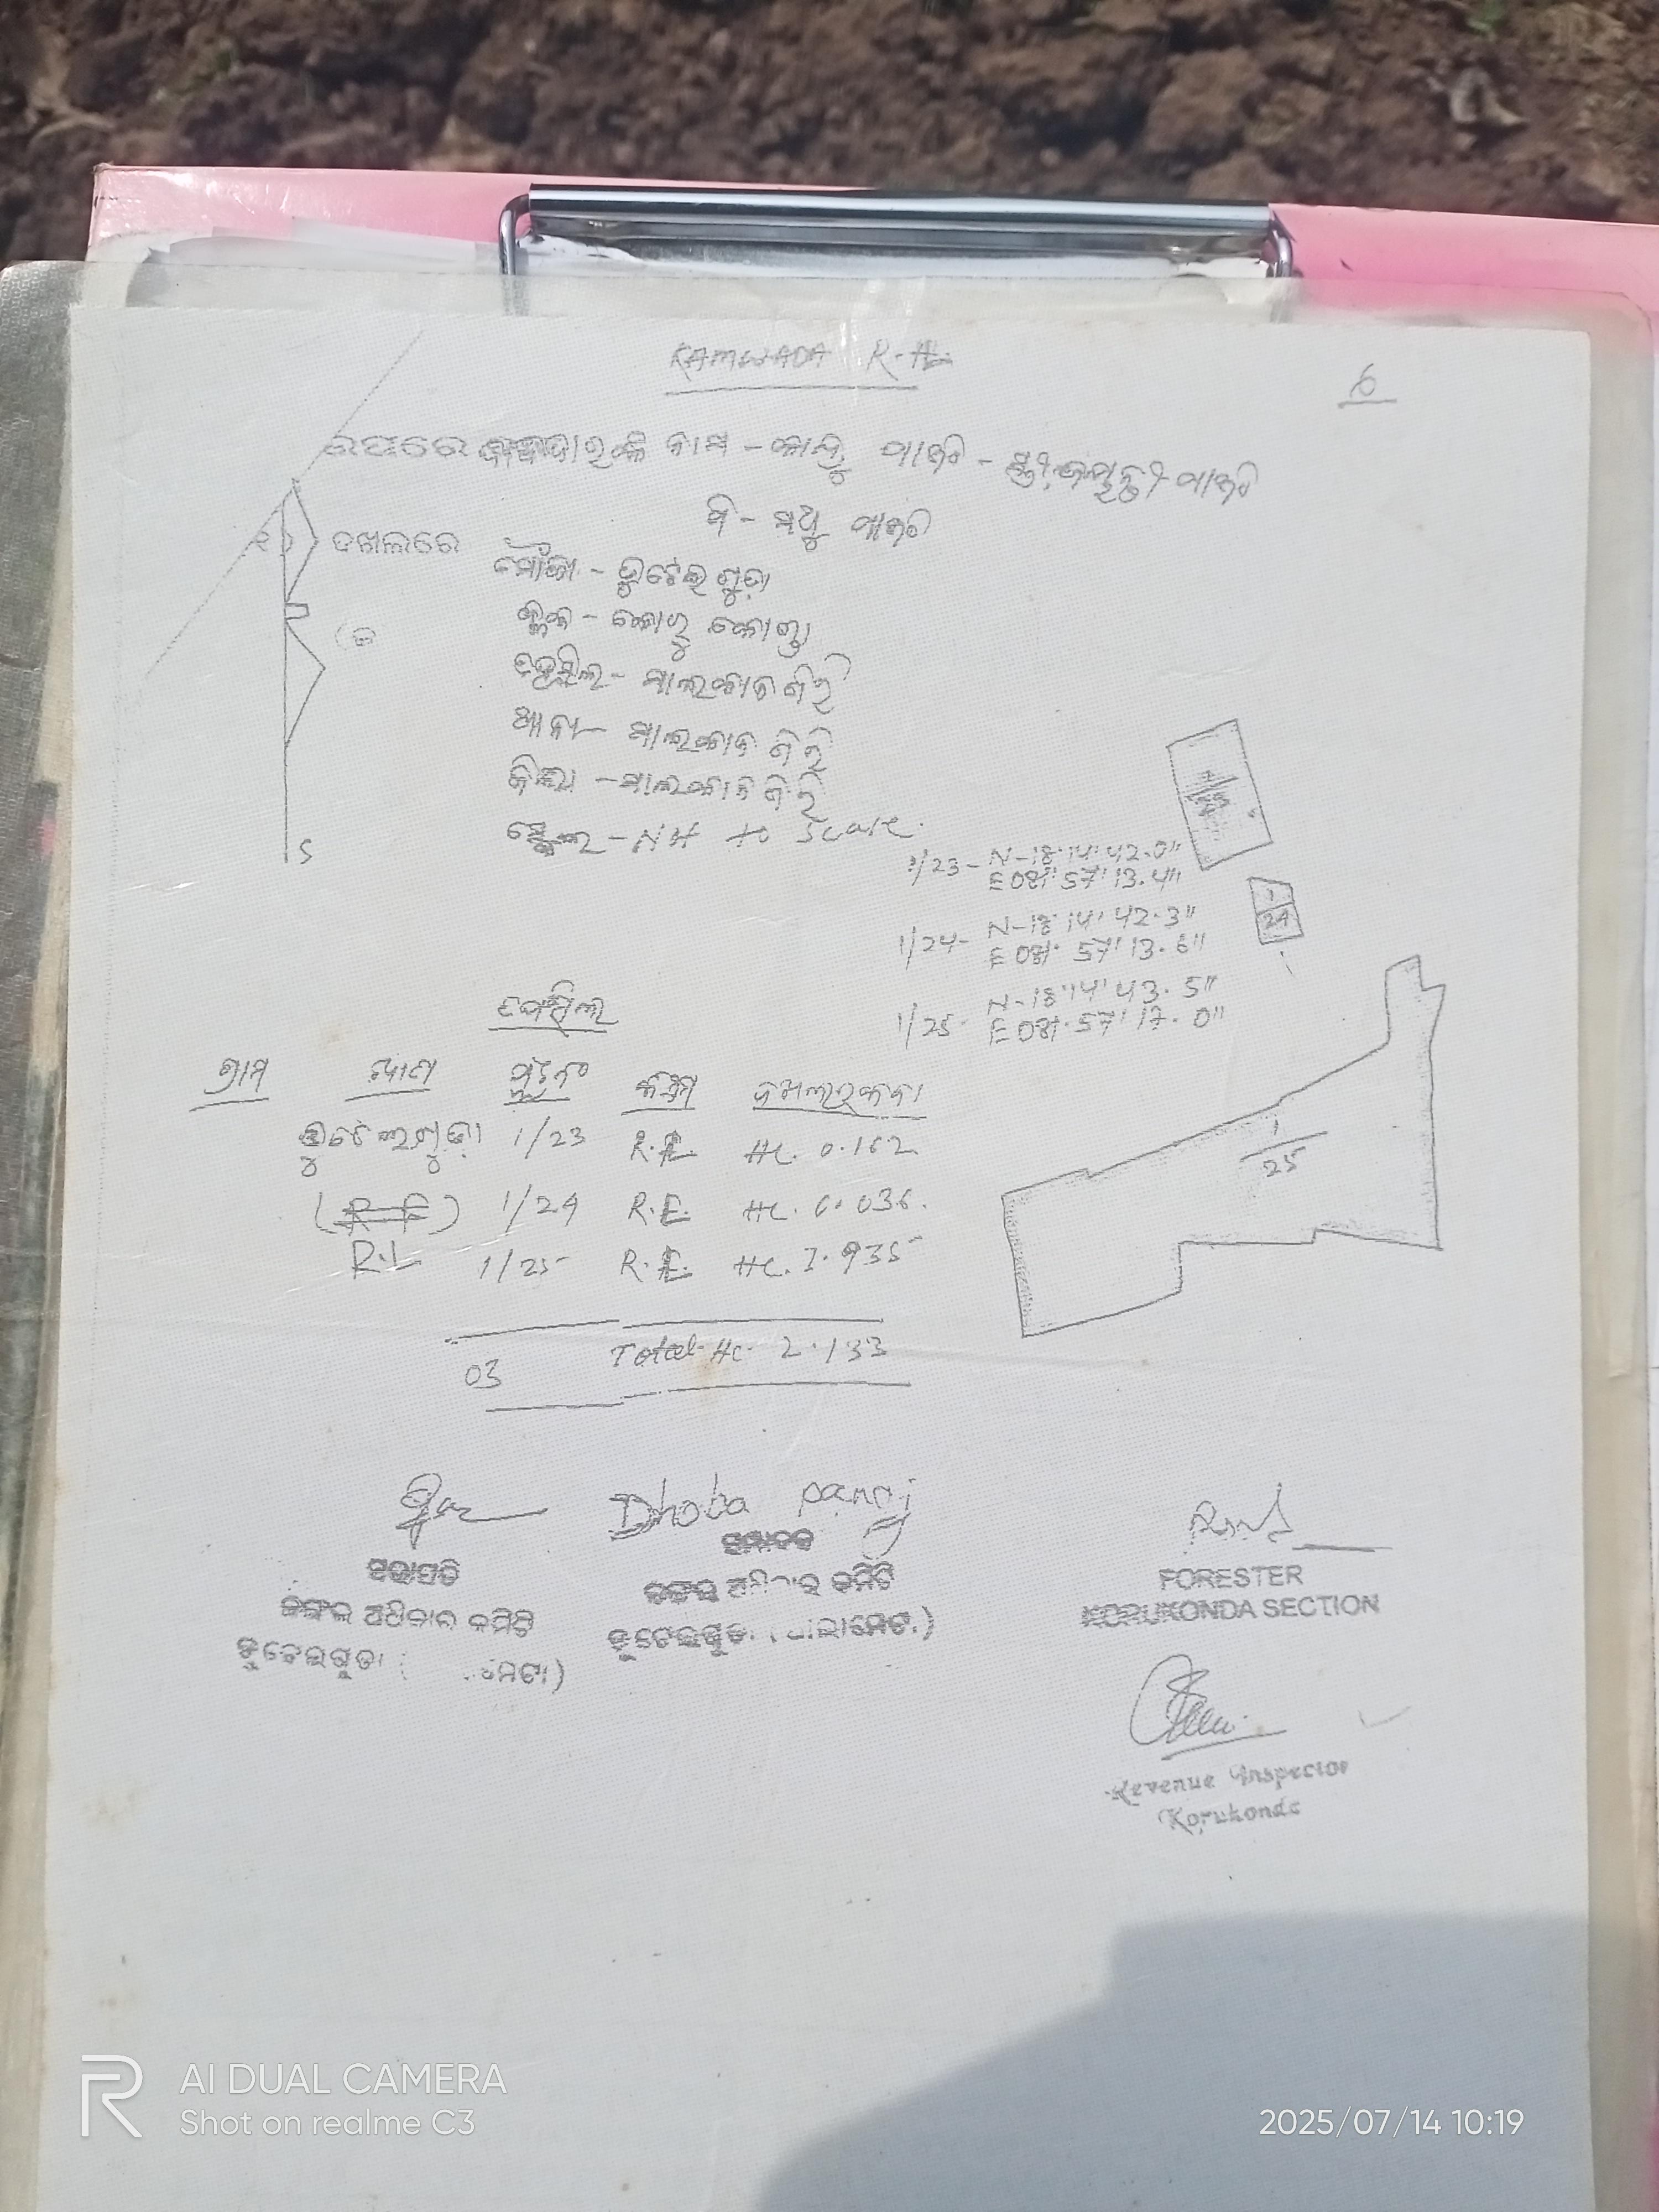 KAMWADA R.H.
6
ଉପରେ ନାମ - ପାଙ୍ଗି - ପାଙ୍ଗି
ପି - ମଧୁ ପାଙ୍ଗି
ଦଖଲରେ
ମୌଜା - ଡୁଟେଇଗୁଡ଼ା
ବ୍ଲକ - କୋରୁକୋଣ୍ଡା
ତହସିଲ - ମାଲକାନଗିରି
ଥାନା - ମାଲକାନଗିରି
ଜିଲ୍ଲା - ମାଲକାନଗିରି
ସ୍କେଲ - to Scale.
S
1/23 - N-18°14' 42.0"
E 081° 57' 13.4"
1/24 - N-18°14' 42.3"
E 081° 57' 13.6"
1/25 - N-18°14' 43.5"
E 081° 57' 17.0"
1
24
1
25
ତଫସିଲ
ଗ୍ରାମ ପ୍ଲଟନଂ କିସମ
ଡୁଟେଲଗୁଡ଼ା 1/23 R.F. Hc. 0.162
1/24 R.F. Hc. 0.036.
R.L 1/25 R.F. Hc. 1.935
03 Total Hc. 2.133
Dhoba pangi
ସଭାପତି
ଜଙ୍ଗଲ ଅଧିକାର କମିଟି
ଡୁଟେଇଗୁଡା
ସମ୍ପାଦକ
ଜଙ୍ଗଲ ଅଧିକାର କମିଟି
ଡୁଟେଇଗୁଡା
FORESTER
KORUKONDA SECTION
Revenue Inspector
Korukonda
AI DUAL CAMERA
Shot on realme C3
2025/07/14 10:19